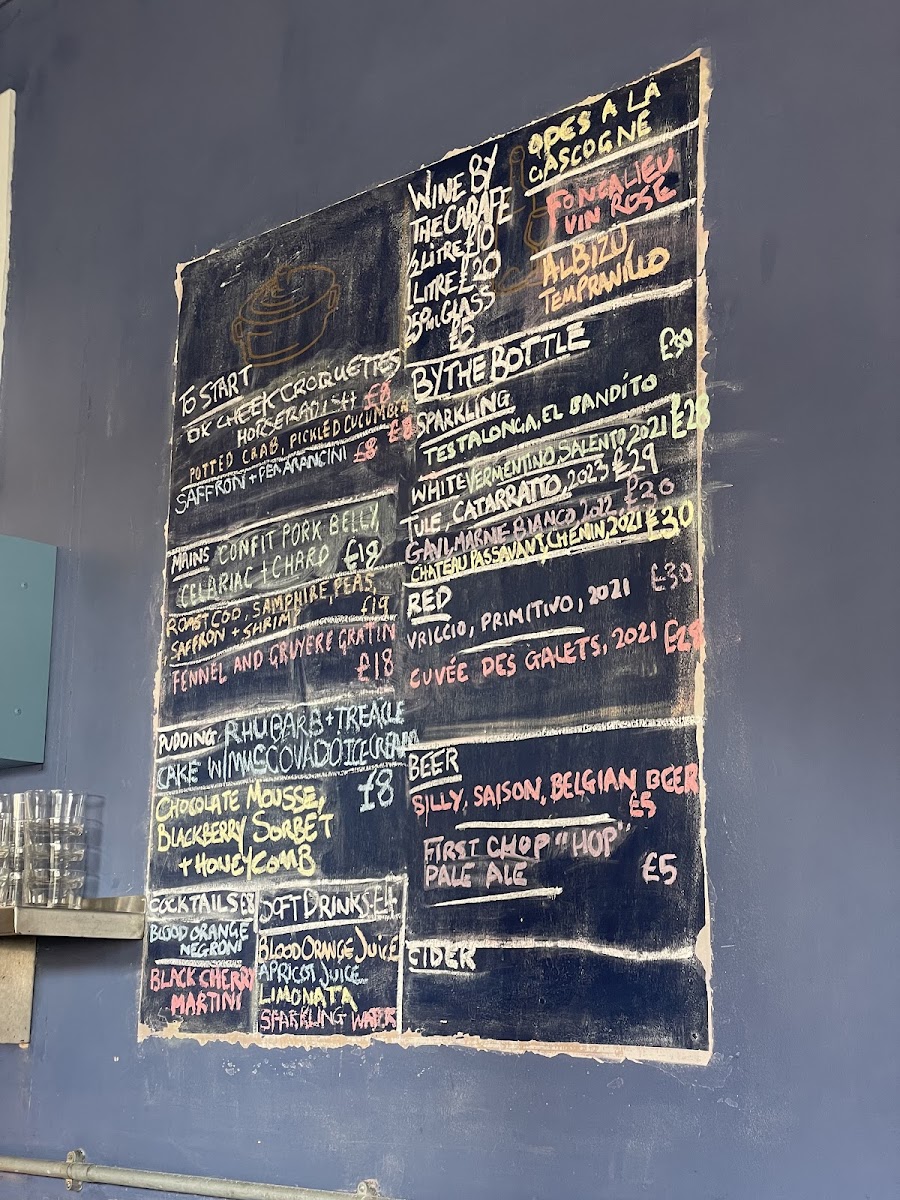 TO START
OX CHEEK CROQUETTES
HORSERADISH £8
POTTED CRAB, PICKLED CUCUMBER £8
SAFFRON + PEA ARANCINI £8
MAINS CONFIT PORK BELLY,
CELARIAC + CHARD £19
ROAST COD, SAMPHIRE, PEAS,
SAFFRON + SHRIMP £19
FENNEL AND GRUYERE GRATIN
£18
PUDDING RHUBARB + TREACLE
CAKE W/MUSCOVADO ICE CREAM
£8
CHOCOLATE MOUSSE,
BLACKBERRY SORBET
+ HONEYCOMB
COCKTAILS £8
BLOOD ORANGE
NEGRONI
BLACK CHERRY
MARTINI
SOFT DRINKS-£4
BLOOD ORANGE JUICE
APRICOT JUICE
LIMONATA
SPARKLING WATER
WINE BY
THE CARAFE
½ LITRE £10
1 LITRE £20
250ml GLASS
£5
OPES A LA
GASCOGNE
FONCALIEU
VIN ROSE
ALBIZU,
TEMPRANILLO
BY THE BOTTLE
SPARKLING £30
TESTALONGA, EL BANDÍTO
WHITE VERMENTINO, SALENTO 2021 £28
TULE, CATARRATTO, 2023 £29
GAVI, MARNE BIANCO 2022, £30
CHATEAU PASSAVANT, CHENIN, 2021 £30
RED
VRICCIO, PRIMITIVO, 2021 £30
CUVÉE DES GALETS, 2021 £28
BEER
BILLY, SAISON, BELGIAN BEER
£5
FIRST CHOP "HOP"
PALE ALE £5
CIDER